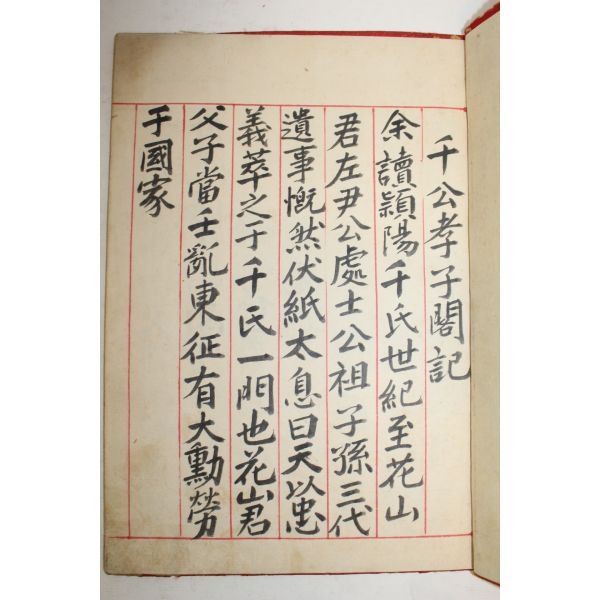 千公孝子閣記
余讀潁陽千氏世紀至花山
君左尹公處士公祖子孫三代
遺事慨然伏紙太息曰天以忠
義萃之于千氏一門也花山君
父子當壬亂東征有大勳勞
于國家